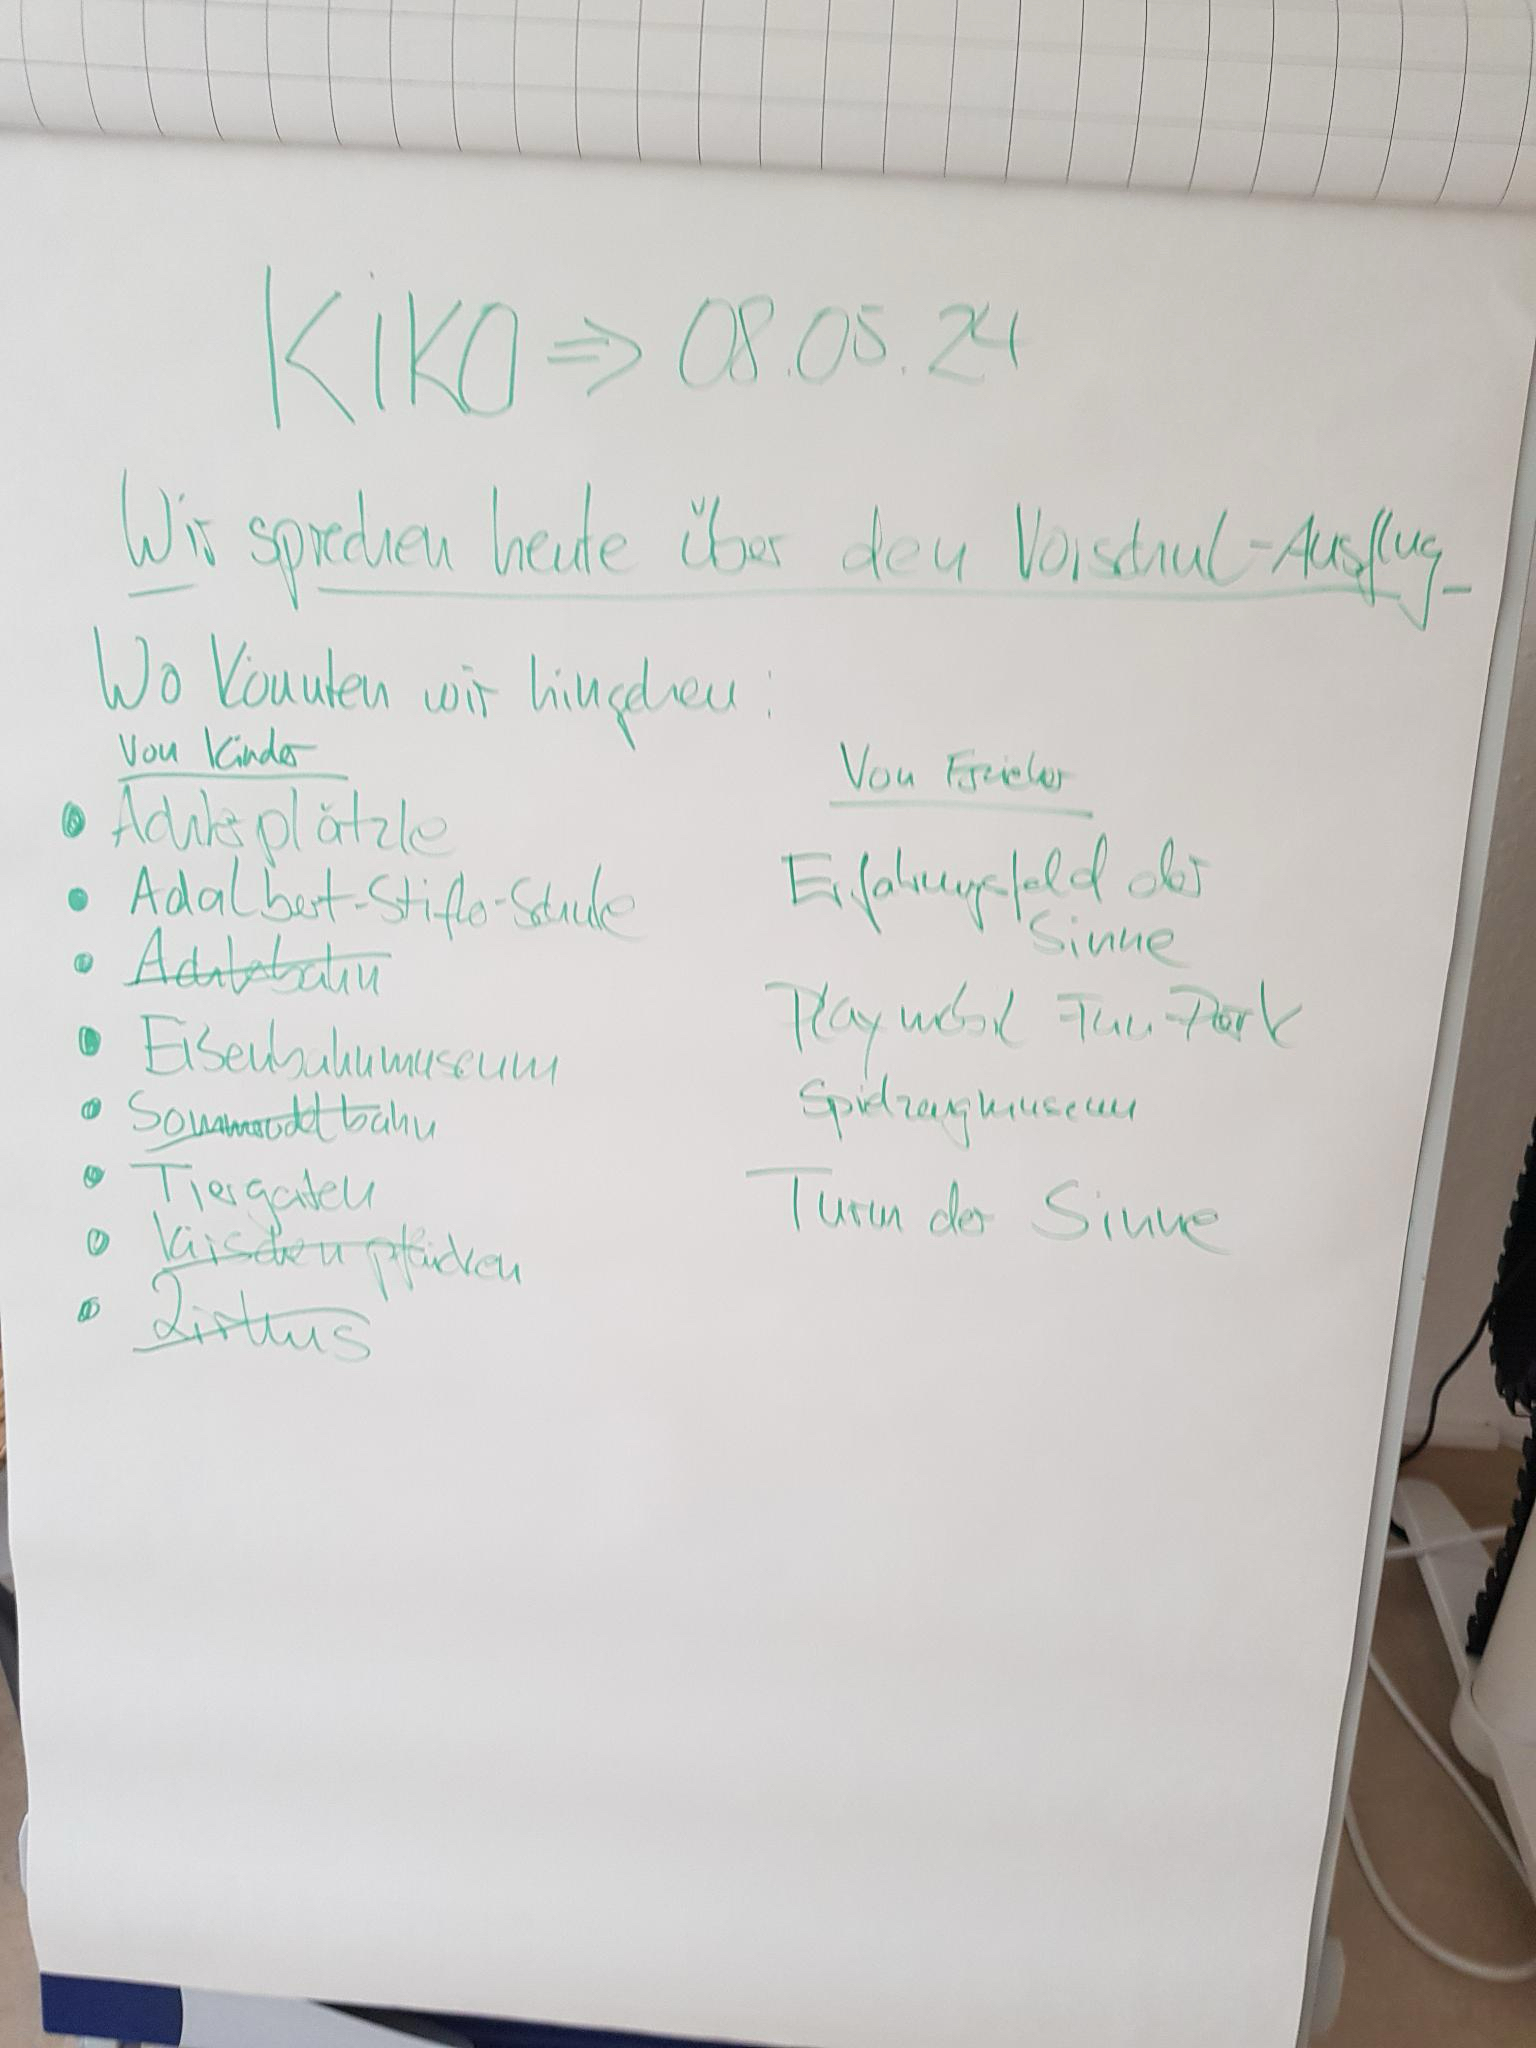 KiKO ⇒ 08.05.24
Wir sprechen heute über den Vorschul-Ausflug
Wo könnten wir hingehen:
Von Kinder
• Adalbert-Stifter-Schule
• Achterbahn
• Eisenbahnmuseum
• Sommerrodelbahn
• Tiergarten
• Kirschen pflücken
• Zirkus
Von Erzieher
Erfahrungsfeld der
Sinne
Playmobil Fun-Park
Spielzeugmuseum
Turm der Sinne